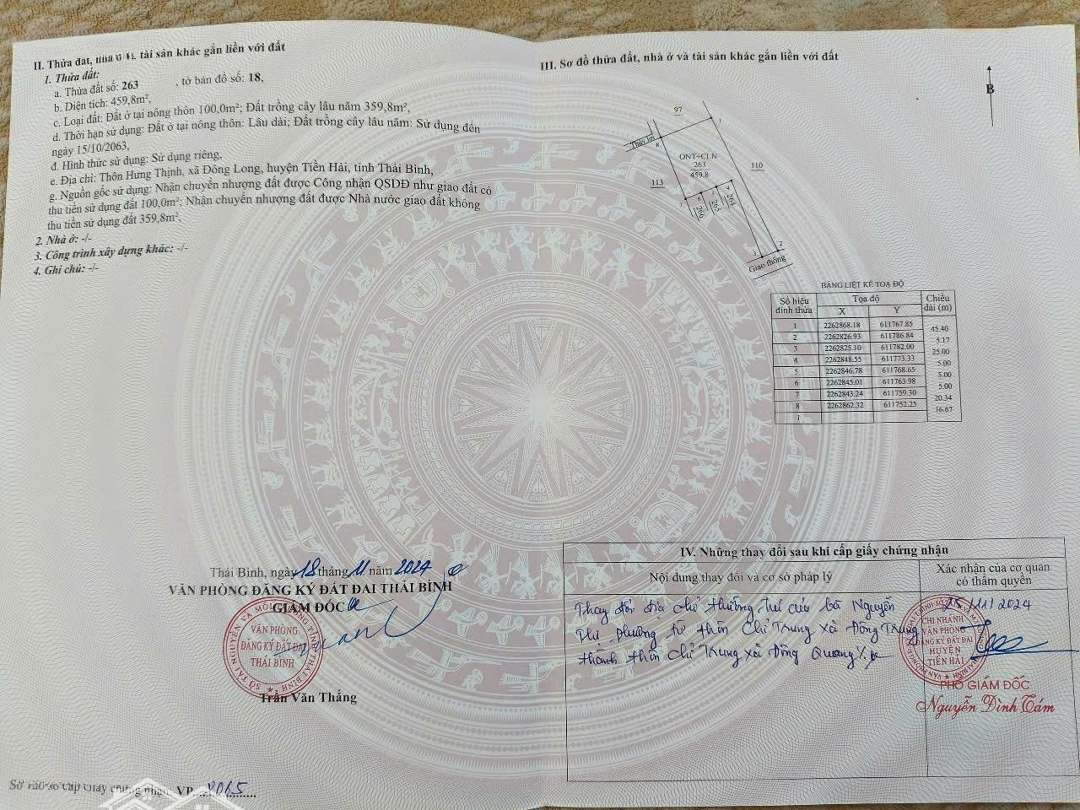 II. Thửa đất, nhà ở và tài sản khác gắn liền với đất
1. Thửa đất:
a. Thửa đất số: 263 , tờ bản đồ số: 18,
b. Diện tích: 459,8m²,
c. Loại đất: Đất ở tại nông thôn 100,0m²; Đất trồng cây lâu năm 359,8m²,
d. Thời hạn sử dụng: Đất ở tại nông thôn: Lâu dài; Đất trồng cây lâu năm: Sử dụng đến
ngày 15/10/2063,
đ. Hình thức sử dụng: Sử dụng riêng,
e. Địa chỉ: Thôn Hưng Thịnh, xã Đông Long, huyện Tiền Hải, tỉnh Thái Bình,
g. Nguồn gốc sử dụng: Nhận chuyển nhượng đất được Công nhận QSDĐ như giao đất có
thu tiền sử dụng đất 100,0m²; Nhận chuyển nhượng đất được Nhà nước giao đất không
thu tiền sử dụng đất 359,8m².
2. Nhà ở: -/-
3. Công trình xây dựng khác: -/-
4. Ghi chú: -/-
Thái Bình, ngày 18 tháng 11 năm 2024
VĂN PHÒNG ĐĂNG KÝ ĐẤT ĐAI THÁI BÌNH
GIÁM ĐỐC
VĂN PHÒNG
ĐĂNG KÝ ĐẤT ĐAI
THÁI BÌNH
Trần Văn Thắng
Số vào sổ cấp Giấy chứng nhận: VP
III. Sơ đồ thửa đất, nhà ở và tài sản khác gắn liền với đất
B
97
1
Thủy lợi
8
ONT+CLN
263
459.8
110
113
7 6 5 4
266 265 264
3 2
Giao thông
BẢNG LIỆT KÊ TỌA ĐỘ
Số hiệu đỉnh thửa Tọa độ Chiều dài (m)
X Y
1 2262868.18 611767.85
45.40
2 2262826.93 611786.84
5.17
3 2262825.10 611782.00
25.00
4 2262848.55 611773.33
5.00
5 2262846.78 611768.65
5.00
6 2262845.01 611763.98
5.00
7 2262843.24 611759.30
20.34
8 2262862.32 611752.25
16.67
1
IV. Những thay đổi sau khi cấp giấy chứng nhận
Nội dung thay đổi và cơ sở pháp lý
Xác nhận của cơ quan
có thẩm quyền
Thay đổi địa chỉ thường trú của bà Nguyễn
Thị Phương từ thôn Chỉ Trung xã Đông Trung
thành thôn Chỉ Trung xã Đông Quang
25/11/2024
CHI NHÁNH
VĂN PHÒNG
ĐĂNG KÝ ĐẤT ĐAI
HUYỆN
TIỀN HẢI
PHÓ GIÁM ĐỐC
Nguyễn Đình Tám